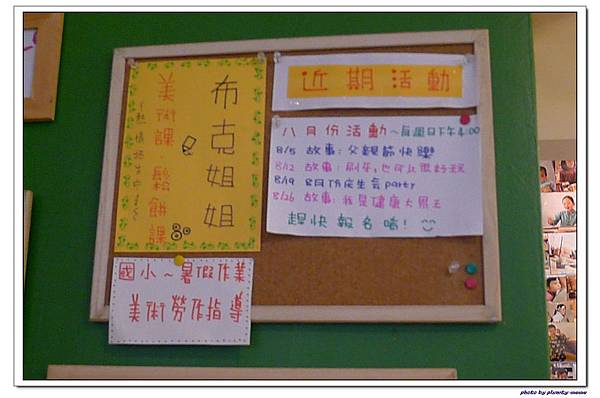 布克姐姐
美術課.鬆餅課
~熱情招生中~
近期活動
八月份活動~每週日下午4:00
8/5 故事:父親節快樂
8/12 故事:刷牙,也可以很好玩
8/19 8月份慶生會party
8/26 故事:我是健康大胃王
趕快報名唷!
國小~暑假作業
美術勞作指導
photo by plunky-mama